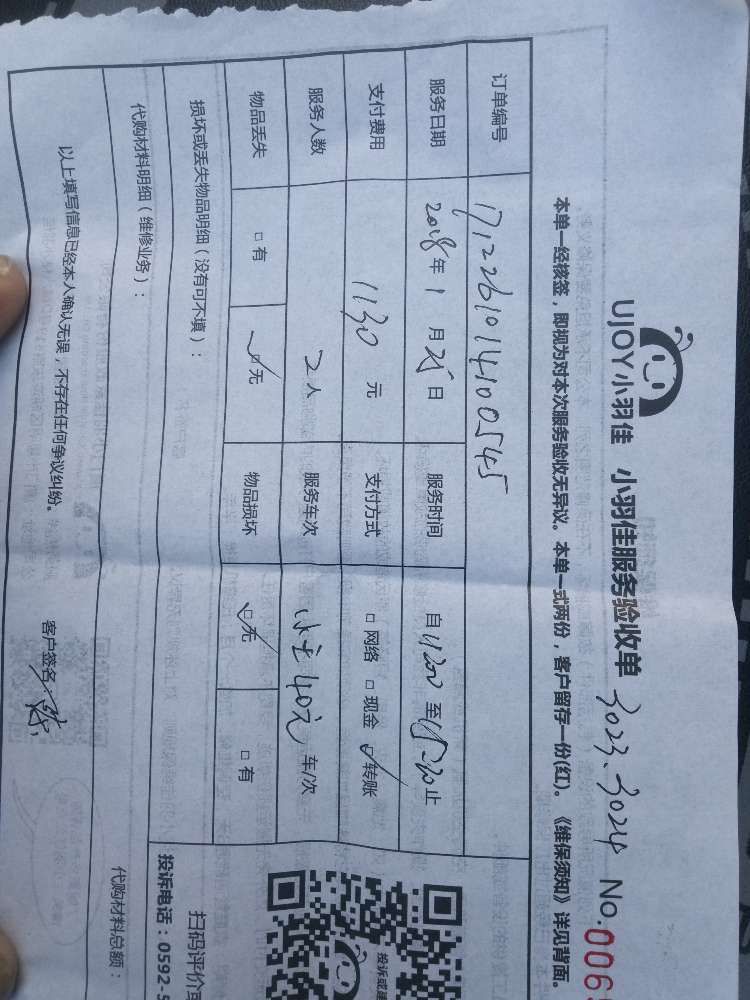 UJOY小羽佳 小羽佳服务验收单 3023、3024 No.006
本单一经核签，即视为对本次服务验收无异议。本单一式两份，客户留存一份(红)。《维保须知》详见背面。
订单编号 1712261014100545
服务日期 2018年1月25日 服务时间 自 至 止
支付费用 1130元 支付方式 □网络 □现金 ☑转账
服务人数 2人 服务车次 40元 车/次
物品丢失 □有 ☑无 物品损坏 ☑无 □有
损坏或丢失物品明细（没有可不填）：
代购材料明细（维修业务）：
代购材料总额：
以上填写信息已经本人确认无误，不存在任何争议纠纷。
客户签名：
投诉或建
扫码评价
投诉电话：0592-5